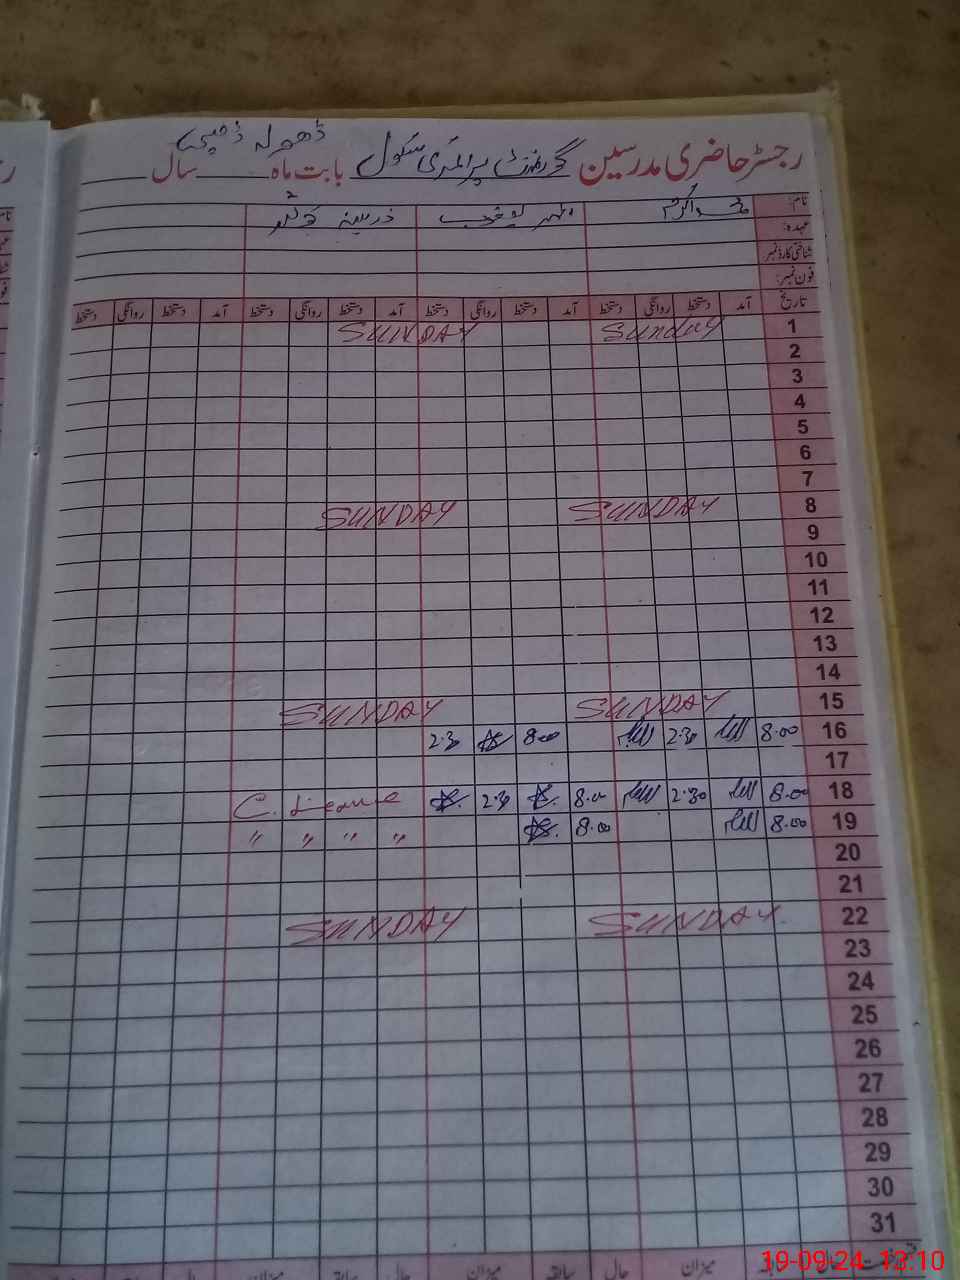 ڈھولہ
رجسٹر حاضری مدرسین گورنمنٹ پرائمری سکول بابت ماہ سال
نام: محمد اکرم
عہدہ:
شناختی کارڈ نمبر
فون نمبر:
تاریخ آمد دستخط روانگی دستخط آمد دستخط روانگی دستخط آمد دستخط روانگی دستخط آمد دستخط روانگی دستخط
1 Sunday SUNDAY
2
3
4
5
6
7
8 SUNDAY SUNDAY
9
10
11
12
13
14
15 SUNDAY SUNDAY
16 8.00 2.30 8.00 2.30
17
18 8.00 2.30 8.00 2.30 C. Leave
19 8.00 8.00 " " " "
20
21
22 SUNDAY SUNDAY
23
24
25
26
27
28
29
30
31
میزان حال سابقہ میزان حال سابقہ میزان
19-09-24 12:10